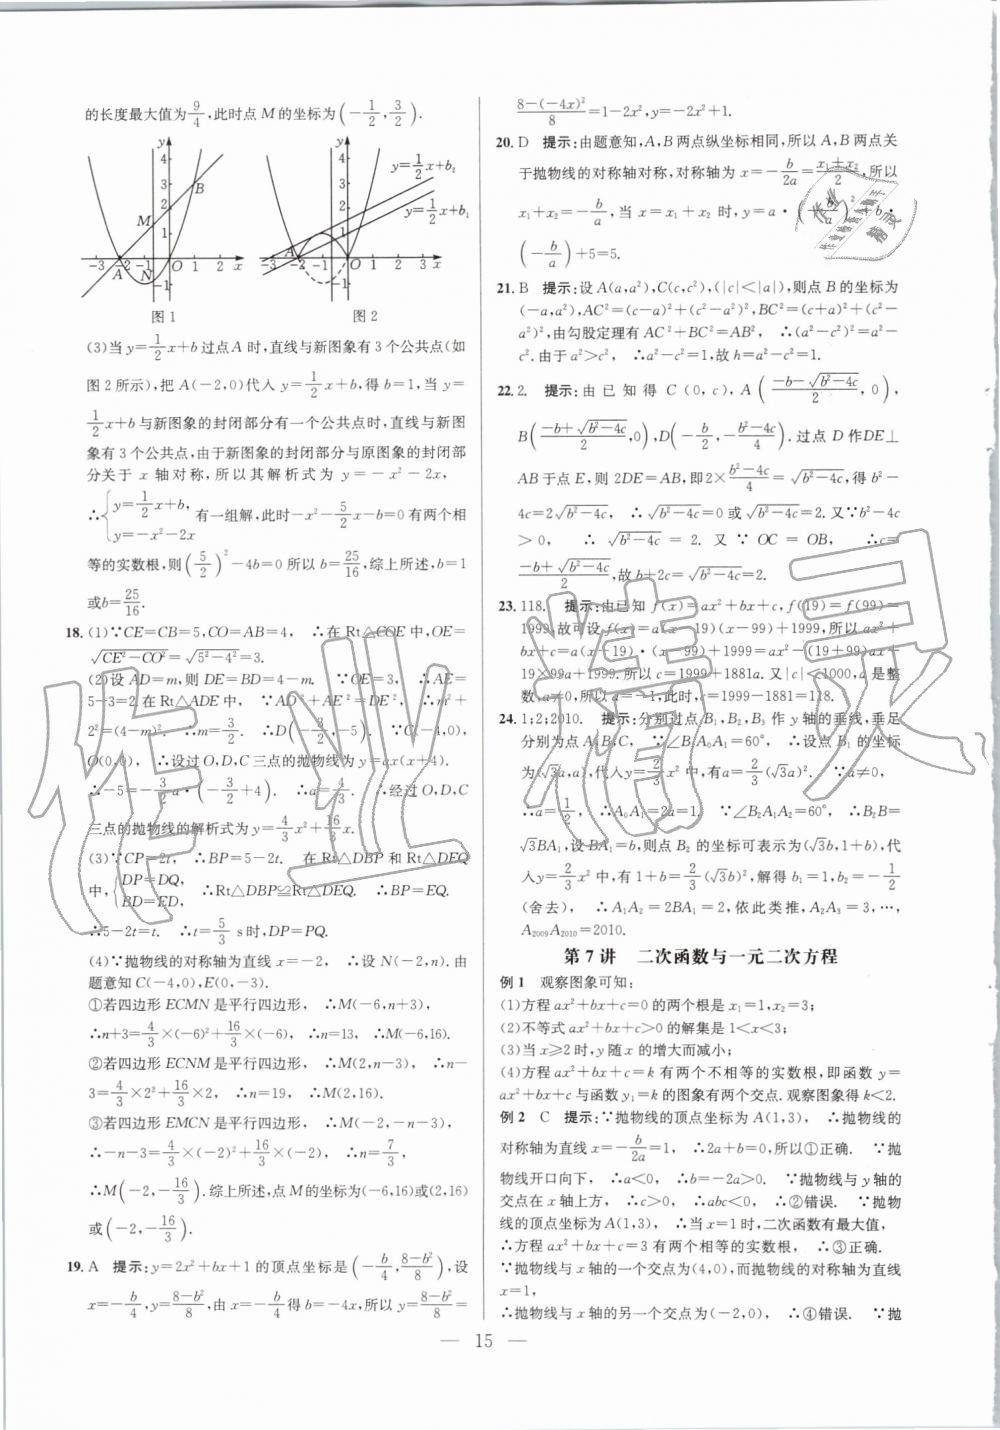 的长度最大值为9/4,此时点M的坐标为(-1/2,3/2).
y
4
3
2
1
B
M
A
N
-3 -2 -1 O 1 2 x
-1
图1
y
4
3
2
1
y=1/2x+b₂
y=1/2x+b₁
-3 -2 -1 O 1 2 3 x
-1
图2
(3)当y=1/2x+b过点A时,直线与新图象有3个公共点(如
图2所示),把A(-2,0)代入y=1/2x+b,得b=1,当y=
1/2x+b与新图象的封闭部分有一个公共点时,直线与新图
象有3个公共点,由于新图象的封闭部分与原图象的封闭部
分关于x轴对称,所以其解析式为y=-x²-2x,
∴{y=1/2x+b, y=-x²-2x 有一组解,此时-x²-5/2x-b=0有两个相
等的实数根,则(5/2)²-4b=0所以b=25/16,综上所述,b=1
或b=25/16.
18.(1)∵CE=CB=5,CO=AB=4, ∴在Rt△COE中,OE=
√(CE²-CO²)=√(5²-4²)=3.
(2)设AD=m,则DE=BD=4-m. ∵OE=3, ∴AE=
5-3=2在Rt△ADE中, ∵AD²+AE²=DE², ∴m²+
2²=(4-m)². ∴m=3/2. ∴D(-3/2,-5). ∵C(-4,0),
O(0,0), ∴设过O,D,C三点的抛物线为y=ax(x+4).
∴-5=-3/2a·(-3/2+4). ∴a=4/3. ∴经过O,D,C
三点的抛物线的解析式为y=4/3x²+16/3x.
(3)∵CP=2t, ∴BP=5-2t. 在Rt△DBP和Rt△DEQ
中,{DP=DQ, BD=ED, ∴Rt△DBP≌Rt△DEQ. ∴BP=EQ.
∴5-2t=t. ∴t=5/3 s时,DP=PQ.
(4)∵抛物线的对称轴为直线x=-2, ∴设N(-2,n).由
题意知C(-4,0),E(0,-3).
①若四边形ECMN是平行四边形, ∴M(-6,n+3),
∴n+3=4/3×(-6)²+16/3×(-6), ∴n=13, ∴M(-6,16).
②若四边形ECNM是平行四边形, ∴M(2,n-3), ∴n-
3=4/3×2²+16/3×2, ∴n=19, ∴M(2,16).
③若四边形EMCN是平行四边形, ∴M(-2,-n-3),
∴-n-3=4/3×(-2)²+16/3×(-2), ∴n=7/3,
∴M(-2,-16/3).综上所述,点M的坐标为(-6,16)或(2,16)
或(-2,-16/3).
19.A 提示:y=2x²+bx+1的顶点坐标是(-b/4,(8-b²)/8),设
x=-b/4,y=(8-b²)/8,由x=-b/4得b=-4x,所以y=(8-b²)/8=
(8-(-4x)²)/8=1-2x²,y=-2x²+1.
20.D 提示:由题意知,A,B两点纵坐标相同,所以A,B两点关
于抛物线的对称轴对称,对称轴为x=-b/2a=(x₁+x₂)/2,所以
x₁+x₂=-b/a,当x=x₁+x₂时,y=a·(-b/a)²+b·
(-b/a)+5=5.
21.B 提示:设A(a,a²),C(c,c²),(|c|<|a|),则点B的坐标为
(-a,a²),AC²=(c-a)²+(c²-a²)²,BC²=(c+a)²+(c²-
a²)²,由勾股定理有AC²+BC²=AB², ∴(a²-c²)²=a²-
c².由于a²>c², ∴a²-c²=1,故h=a²-c²=1.
22.2. 提示:由已知得C(0,c),A((-b-√(b²-4c))/2,0),
B((-b+√(b²-4c))/2,0),D(-b/2,-(b²-4c)/4).过点D作DE⊥
AB于点E,则2DE=AB,即2×(b²-4c)/4=√(b²-4c),得b²-
4c=2√(b²-4c), ∴√(b²-4c)=0或√(b²-4c)=2.又∵b²-4c
>0, ∴√(b²-4c)=2.又∵OC=OB, ∴c=
(-b+√(b²-4c))/2,故b+2c=√(b²-4c)=2.
23.118. 提示:由已知f(x)=ax²+bx+c,f(19)=f(99)=
1999.故可设f(x)=a(x-19)(x-99)+1999,所以ax²+
bx+c=a(x-19)·(x-99)+1999=ax²-(19+99)ax+
19×99a+1999.所以c=1999+1881a.又|c|<1000,a为整
数,a≠0,所以a=-1,此时,c=1999-1881=118.
24.1;2;2010. 提示:分别过点B₁,B₂,B₃作y轴的垂线,垂足
分别为点A,B,C, ∵∠B₁A₀A₁=60°, ∴设点B₁的坐标
为(√3a,a),代入y=2/3x²中,有a=2/3(√3a)². ∵a≠0,
∴a=1/2, ∴A₀A₁=2a=1. ∵∠B₂A₁A₂=60°, ∴B₂B=
√3BA₁,设BA₁=b,则点B₂的坐标可表示为(√3b,1+b),代
入y=2/3x²中,有1+b=2/3(√3b)²,解得b=1,或b=-1/2
(舍去), ∴A₁A₂=2BA₁=2,依此类推,A₂A₃=3,…,
A₂₀₀₉A₂₀₁₀=2010.
第7讲 二次函数与一元二次方程
例1 观察图象可知:
(1)方程ax²+bx+c=0的两个根是x₁=1,x₂=3;
(2)不等式ax²+bx+c>0的解集是1<x<3;
(3)当x≥2时,y随x的增大而减小;
(4)方程ax²+bx+c=k有两个不相等的实数根,即函数y=
ax²+bx+c与函数y₁=k的图象有两个交点.观察图象得k<2.
例2 C 提示:∵抛物线的顶点坐标为A(1,3), ∴抛物线的
对称轴为直线x=-b/2a=1, ∴2a+b=0,所以①正确. ∵抛
物线开口向下, ∴a<0, ∴b=-2a>0. ∵抛物线与y轴的
交点在x轴上方, ∴c>0, ∴abc<0, ∴②错误. ∵抛物
线的顶点坐标为A(1,3), ∴当x=1时,二次函数有最大值,
∴方程ax²+bx+c=3有两个相等的实数根, ∴③正确.
∵抛物线与x轴的一个交点为(4,0),而抛物线的对称轴为直线
x=1,
∴抛物线与x轴的另一个交点为(-2,0), ∴④错误. ∵抛
— 15 —
作业精灵